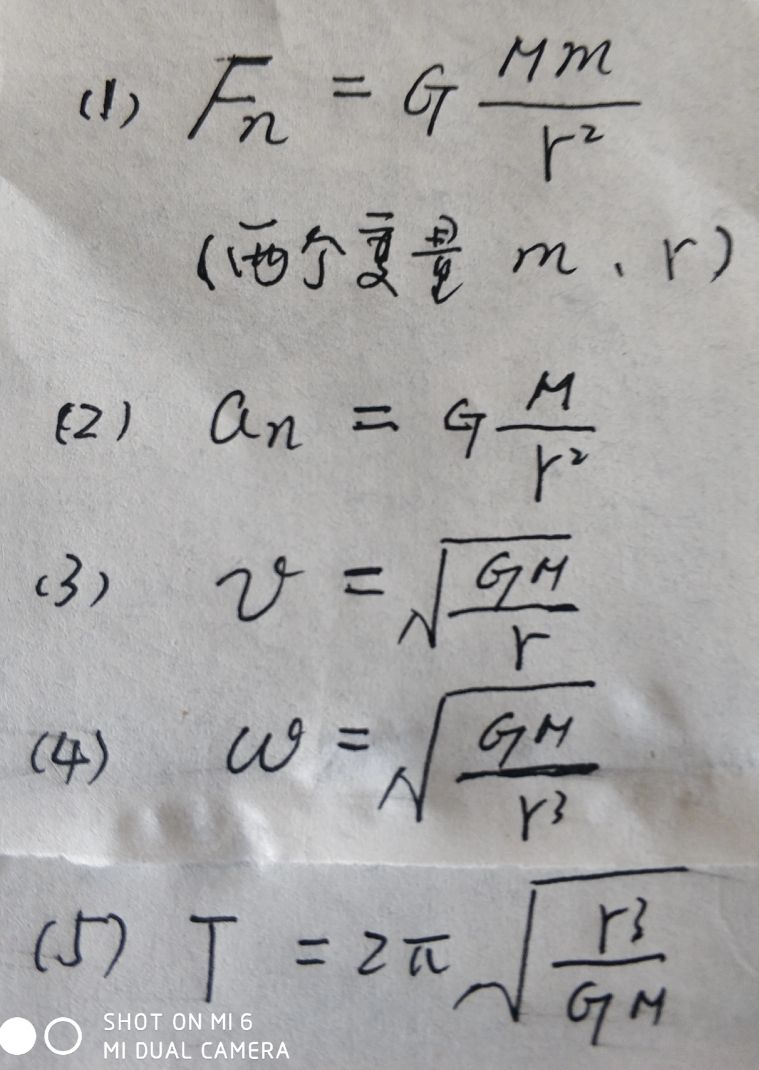 (1) Fₙ = G Mm/r²
(两个变量 m、r)
(2) aₙ = G M/r²
(3) v = √(GM/r)
(4) ω = √(GM/r³)
(5) T = 2π √(r³/GM)
SHOT ON MI 6
MI DUAL CAMERA